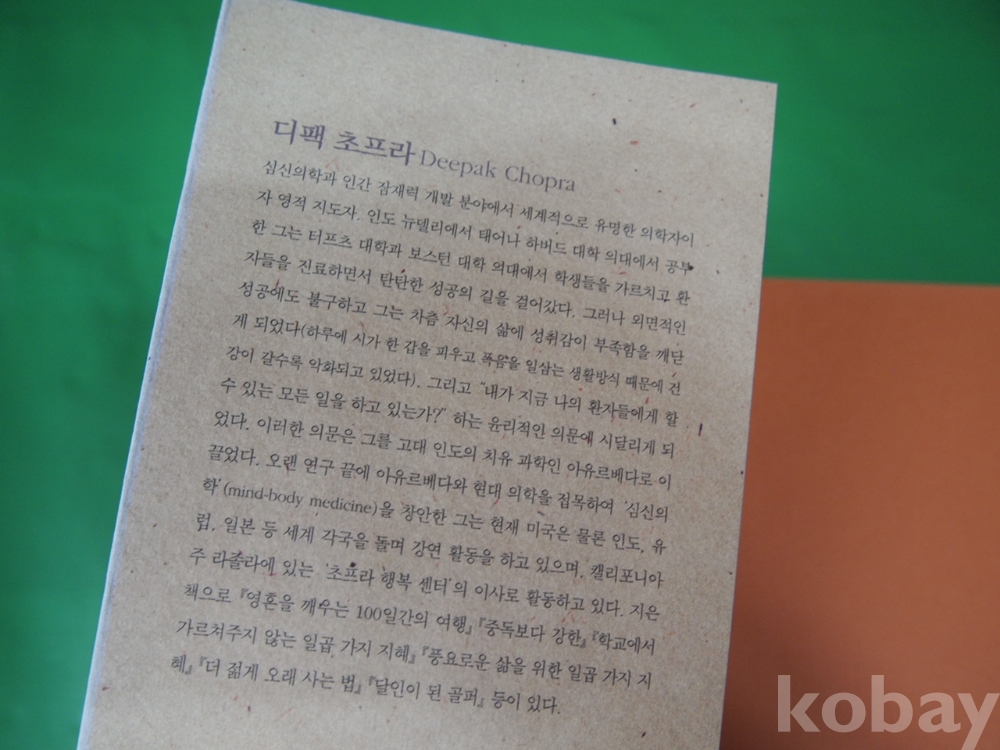 디팩 초프라 Deepak Chopra
심신의학과 인간 잠재력 개발 분야에서 세계적으로 유명한 의학자이
자 영적 지도자. 인도 뉴델리에서 태어나 하버드 대학 의대에서 공부
한 그는 터프츠 대학과 보스턴 대학 의대에서 학생들을 가르치고 환
자들을 진료하면서 탄탄한 성공의 길을 걸어갔다. 그러나 외면적인
성공에도 불구하고 그는 차츰 자신의 삶에 성취감이 부족함을 깨닫
게 되었다(하루에 시가 한 갑을 피우고 폭음을 일삼는 생활방식 때문에 건
강이 갈수록 악화되고 있었다). 그리고 "내가 지금 나의 환자들에게 할
수 있는 모든 일을 하고 있는가?" 하는 윤리적인 의문에 시달리게 되
었다. 이러한 의문은 그를 고대 인도의 치유 과학인 아유르베다로 이
끌었다. 오랜 연구 끝에 아유르베다와 현대 의학을 접목하여 '심신의
학'(mind-body medicine)을 창안한 그는 현재 미국은 물론 인도, 유
럽, 일본 등 세계 각국을 돌며 강연 활동을 하고 있으며, 캘리포니아
주 라졸라에 있는 '초프라 행복 센터'의 이사로 활동하고 있다. 지은
책으로 『영혼을 깨우는 100일간의 여행』 『중독보다 강한』 『학교에서
가르쳐주지 않는 일곱 가지 지혜』 『풍요로운 삶을 위한 일곱 가지 지
혜』 『더 젊게 오래 사는 법』 『달인이 된 골퍼』 등이 있다.
kobay